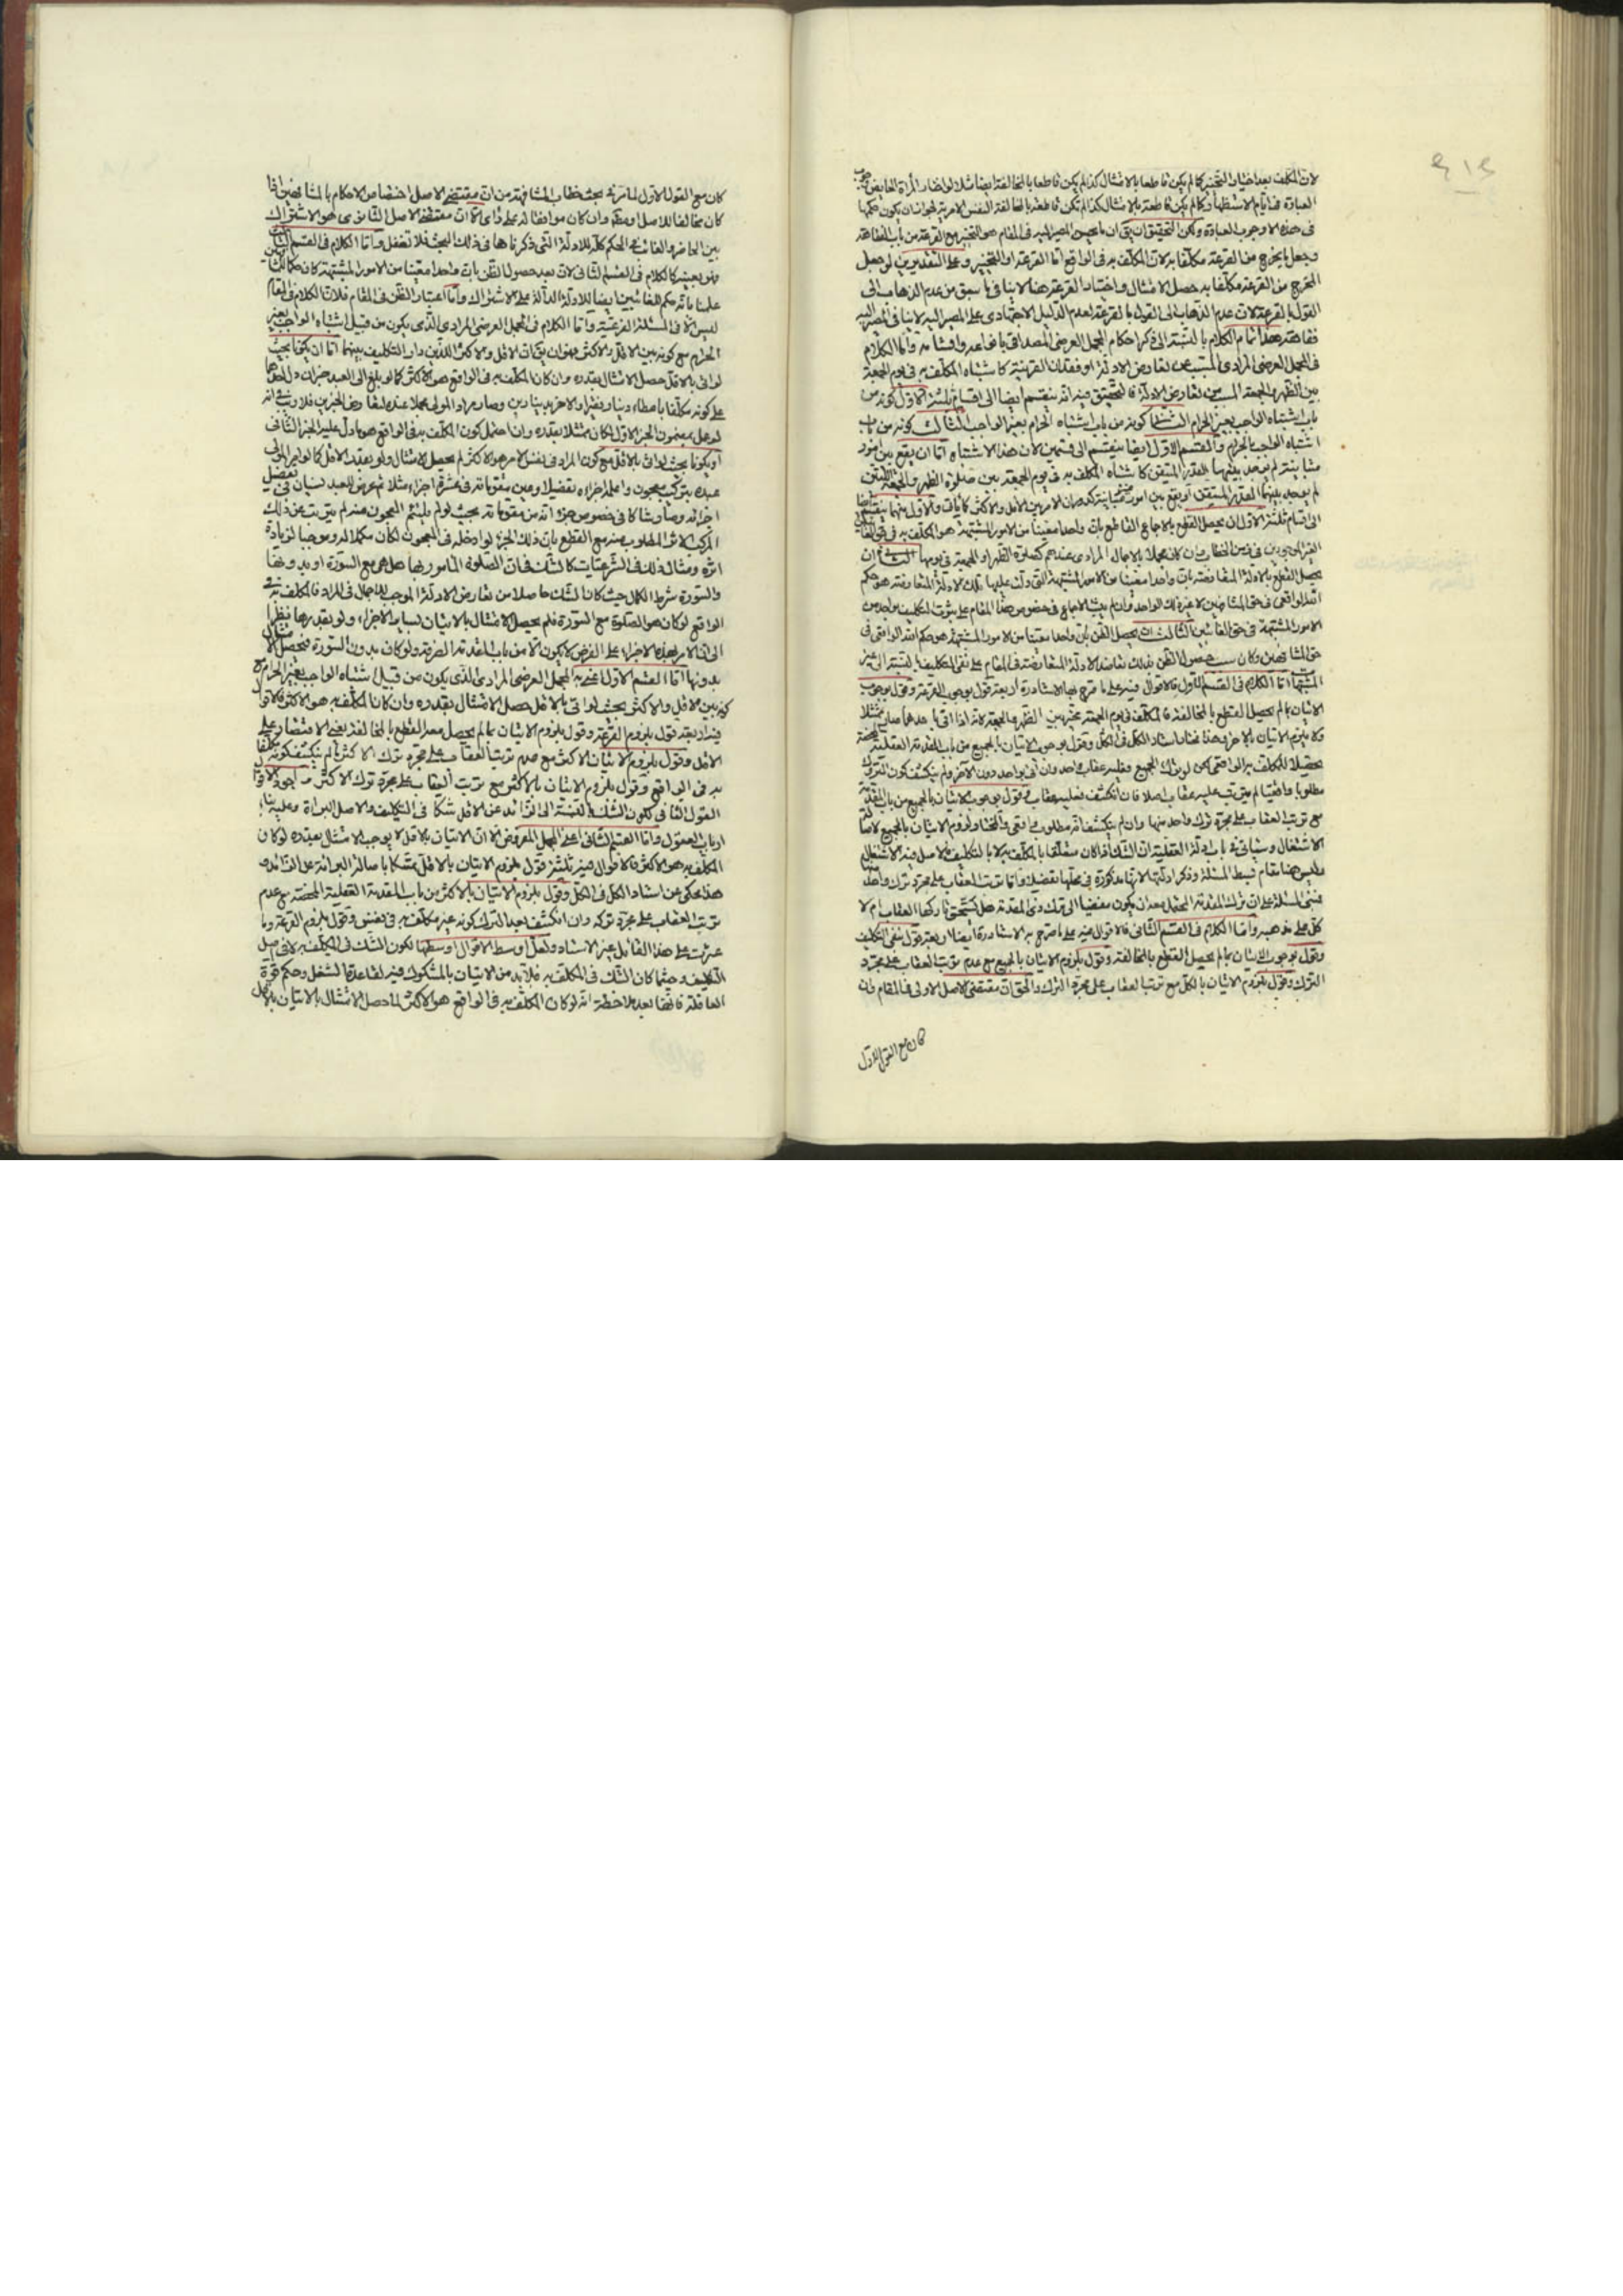 ٤١٤
لان المكلف بعد اختيار التخيير كما لم يكن قاطعا بالامتثال كذا لم يكن قاطعا بالمخالفة ايضا مثلا لو اختار المرأة الحايض
العبادة في ايام الاستظهار وكما لم يكن قاطعة بالامتثال كذا لم تكن قاطعة بالمخالفة النفس الامرية لجواز ان يكون حكمها
في هذه الا وجوب العبادة ولكن التحقيق ان يق ان ما يجب المصير اليه في المقام هو التخيير مع القرعة من باب الفقاهة
وجعل ما يخرج من القرعة مكلفا به لان المكلف به في الواقع اما القرعة او التخيير وعلى التقديرين لو جعل
المخرج من القرعة مكلفا به حصل الامتثال واختيار القرعة هنا لا ينافي ما سبق من عدم الذهاب الى
القول بالقرعة لان عدم الذهاب الى القول بالقرعة لعدم الدليل الاجتهادي على المصير اليه لا ينافي المصير اليه
فقاهة هذا تمام الكلام بالنسبة الى ذكر احكام المجمل العرضي المصداقي بانواعه واقسامه واما الكلام
في المجمل العرضي المرادي المسبب عن تعارض الادلة او فقدان القرينة كاشتباه المكلف به في يوم الجمعة
بين الظهر والجمعة المسبب عن تعارض الادلة فالتحقيق فيه انه ينقسم ايضا الى اقسام ثلثة الاول كونه من
باب اشتباه الواجب بغير الحرام الثاني كونه من باب اشتباه الحرام بغير الواجب الثالث كونه من باب
اشتباه الواجب بالحرام والقسم الاول ايضا ينقسم الى قسمين لان هذا الاشتباه اما ان يقع بين امور
متباينة لم يوجد بينهما القدر المتيقن كاشتباه المكلف به في يوم الجمعة بين صلوة الظهر والجمعة اللتين
لم يوجد بينهما القدر المتيقن او يقع بين امور غير متباينة كدوران الامر بين الاقل والاكثر كما يأت والاول منهما ينقسم ايضا
الى اقسام ثلثة الاول ان يحصل القطع بالاجماع القاطع بان واحدا معينا من الامور المشتبهة هو المكلف به في حق الغائبين
الغير الموجودين في زمن الخطاب وان كان مجملا بالاجمال المرادي عندهم كصلوة الظهر او الجمعة في يومها الثاني ان
يحصل القطع بالادلة المتعارضة بان واحدا معينا من الامور المشتبهة التي دلت عليها تلك الادلة المتعارضة هو حكم
الله الواقعي في حق المشافهين لا غير ذلك الواحد وان لم يثبت الاجماع في خصوص هذا المقام على ثبوت التكليف بواحد من
الامور المشتبهة في حق الغائبين الثالث ان يحصل الظن بان واحدا معينا من الامور المشتبهة هو حكم الله الواقعي في
حق المشافهين وكان سبب حصول الظن بذلك تعاضد الادلة المتعارضة في المقام على نفي التكليف بالنسبة الى غير
المشتبهات اما الكلام في القسم الاول فالاقوال فيه على ما صرح به الاستاد ره اربعة قول بوجوب القرعة وقول بوجوب
الاتيان بما لم يحصل القطع بالمخالفة فالمكلف في يوم الجمعة مخير بين الظهر والجمعة لانه اذا اتى باحدهما صار ممتثلا
ولا يلزم الاتيان بالاخر وهذا مختار استاد الكل في الكل وقول بوجوب الاتيان بالجميع من باب المقدمة العقلية المحضة
تحصيلا للمكلف به الواقعي لكن لو ترك الجميع فعليه عقاب واحد وان اتى بواحد دون الاخر ولم ينكشف كون المتروك
مطلوبا واقعيا لم يترتب عليه عقاب اصلا فان انكشف فعليه عقاب وقول بوجوب الاتيان بالجميع من باب المقدمة
مع ترتب العقاب على مجرد ترك واحد منهما وان لم ينكشف انه مطلوب واقعي والمختار لزوم الاتيان بالجميع لاصالة
الاشتغال وسيأتي في باب ادلة العقلية ان الشك اذا كان متعلقا بالمكلف به لا بالتكليف فالاصل فيه الاشتغال
وليس هنا مقام بسط المسئلة وذكر ادلتها لانها مذكورة في محلها تفصيلا واما ترتب العقاب على مجرد ترك واحد منهما
فمبني المسئلة على ان ترك المقدمة المحتمل بعد ان يكون مفضيا الى ترك ذي المقدمة هل يستحق تاركها العقاب ام لا
كل على مذهبه واما الكلام في القسم الثاني فالاقوال فيه على ما صرح به الاستاد ره ايضا اربعة قول بنفي التكليف
وقول بوجوب الاتيان بما لم يحصل القطع بالمخالفة وقول بلزوم الاتيان بالجميع مع عدم ترتب العقاب على مجرد
الترك وقول بلزوم الاتيان بالكل مع ترتب العقاب على مجرد الترك والحق ان مقتضى الاصل الاولي في المقام وان
كان مع القول الاول
كان مع القول الاول لما مر في بحث خطاب المشافهة من ان مقتضى الاصل اختصاص الاحكام بالمشافهين اذا
كان مخالفا للاصل او مطلقا وان كان موافقا له على رأي الا ان مقتضى الاصل الثانوي هو الاشتراك
بين الحاضر والغائب في الحكم كلا للادلة التي ذكرناها في ذلك البحث فلا تغفل واما الكلام في القسم الثالث
فهو بعينه كالكلام في القسم الثاني لان بعد حصول الظن بان واحدا معينا من الامور المشتبهة كان حكما لذلك
علمنا بانه حكم الغائبين ايضا للادلة الدالة على الاشتراك واما اعتبار الظن في المقام فلان الكلام في المقام
ليس الا في المسئلة الفرعية واما الكلام في المجمل العرضي المرادي الذي يكون من قبيل اشتباه الواجب بغير
الحرام مع كونه بين الاقل والاكثر فهو ان يق ان الاقل والاكثر اللذين دار التكليف بينهما اما ان يكونا بحيث
لو اتى بالاقل حصل الامتثال بقدره وان كان المكلف به في الواقع هو الاكثر كما لو بلغ الى العبد خبران دل احدهما
على كونه مكلفا باعطاء دينار فقيرا والاخر بدينارين وصار مراد المولى مجملا عنده لتعارض الخبرين فلا ريب في انه
لو عمل بمضمون الخبر الاول لكان ممتثلا بقدره وان احتمل كون المكلف به في الواقع هو ما دل عليه الخبر الثاني
او يكونا بحيث لو اتى بالاقل مع كون المراد في نفس الامر هو الاكثر لم يحصل الامتثال ولو بقدر الاقل كما لو امر المولى
عبده بتركيب معجون واعلمه اجزاءه تفصيلا وعين مقوماته في عشرة اجزاء مثلا ثم عرض للعبد نسيان في تفصيل
اجزائه وصار شاكا في خصوص جزء انه من مقوماته بحيث لو لم يلتئم المعجون منه لم يترتب عن ذلك
المركب الاثر المطلوب منه مع القطع بان ذلك الجزء لو ادخله في المعجون لكان مكملا له وموجبا لزيادة
اثره ومثال ذلك في الشرعيات كالشك في ان الصلوة المأمور بها هل هي مع السورة او بدونها
والسورة شرط الكمال حيث كان الشك حاصلا من تعارض الادلة الموجب للاجمال في المراد فالمكلف به في
الواقع لو كان هو الصلوة مع السورة فلم يحصل الامتثال بالاتيان بساير الاجزاء ولو بقدرها نظرا
الى ان الامر بهذه الاجزاء على الفرض لا يكون الا من باب المقدمة الصرفة ولو كان بدون السورة فيحصل الامتثال
بدونها اما القسم الاول اعني به المجمل العرضي المرادي الذي يكون من قبيل اشتباه الواجب بغير الحرام مع
كونه بين الاقل والاكثر بحيث لو اتى بالاقل حصل الامتثال بقدره وان كان المكلف به هو الاكثر فالاقوال
فيه اربعة قول بلزوم القرعة وقول بلزوم الاتيان بما لم يحصل معه القطع بالمخالفة يعني الاقتصار على
الاقل وقول بلزوم الاتيان بالاكثر مع عدم ترتب العقاب على مجرد ترك الاكثر ما لم ينكشف كونه مكلفا
به في الواقع وقول بلزوم الاتيان بالاكثر مع ترتب العقاب على مجرد ترك الاكثر واجود الاقوال
القول الثاني لكون الشك بالنسبة الى الزائد عن الاقل شكا في التكليف والاصل البراءة وعليه بناء
ارباب العقول واما القسم الثاني اعني المجمل المفروض الا ان الاتيان بالاقل لا يوجب الامتثال بقدره لو كان
المكلف به هو الاكثر فالاقوال فيه ثلثة قول بلزوم الاتيان بالاقل تمسكا باصالة البرائة عن الزائد و
هذا محكي عن استاد الكل في الكل وقول بلزوم الاتيان بالاكثر من باب المقدمة العقلية المحضة مع عدم
ترتب العقاب على مجرد تركه وان انكشف بعد الترك كونه غير مكلف به في نفس وقول بلزوم القرعة وما
عثرت على هذا القائل غير الاستاد ولعل اوسط الاقوال اوسطها لكون الشك في المكلف به لا في اصل
التكليف وحيثما كان الشك في المكلف به فلا بد من الاتيان بالمشكوك فيه لقاعدة الشغل وحكم قوة
العاقلة فانها بعد ملاحظة انه لو كان المكلف به في الواقع هو الاكثر لما حصل الامتثال بالاتيان بالاقل